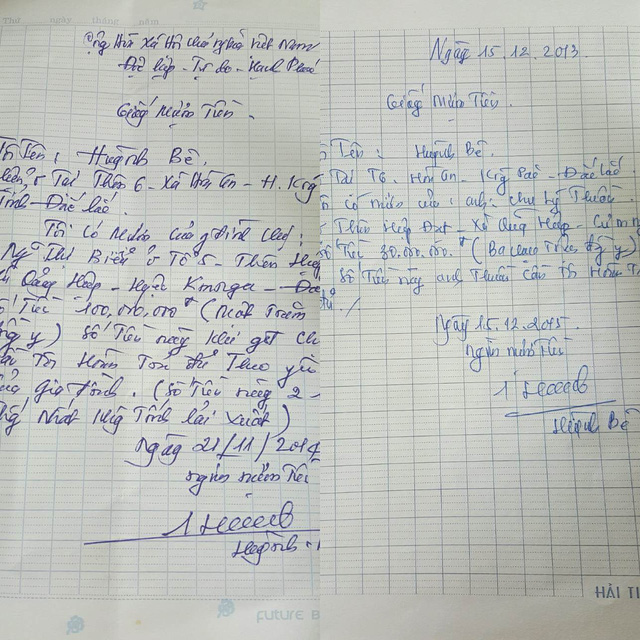 Thứ ngày tháng năm
Cộng Hòa Xã Hội chủ nghĩa Việt Nam
Độc lập - Tự do - Hạnh Phúc
Giấy Mượn Tiền.
Tên: Huỳnh Bê.
Tại Thôn 6 - Xã Hòa - H. Krông
Tỉnh - Đắc lắc.
Tôi có mượn của gđình chú:
Ng Thị Biển ở Tổ 5 - Thôn Hiệp
Quảng Hiệp - Huyện Kmơga - Đắc
Tiền 100,000,000đ (Một Trăm
y) Số Tiền này khi gđ
Tôi Hoàn Trả đủ Theo yêu
gia đình. (Số Tiền này 2
Nhất Không Tính lãi Xuất)
Ngày 21/11/2014
người mượn Tiền
Huỳnh
FUTURE B
Ngày 15.12.2013
Giấy Mượn Tiền.
Tên: Huỳnh Bê.
Tại T6. Hòa - Krông - Đắc lắc.
có mượn của: anh: chu Thuần
Thôn Hiệp Đạt - Xã Quảng Hiệp - Cư M
Số Tiền 30.000.000.đ (Ba chục Triệu đồng y)
Số Tiền này anh Thuần cần Tôi Hoàn Tr
đủ./
Ngày 15.12.2015.
người mượn Tiền
Huỳnh Bê
HẢI TI